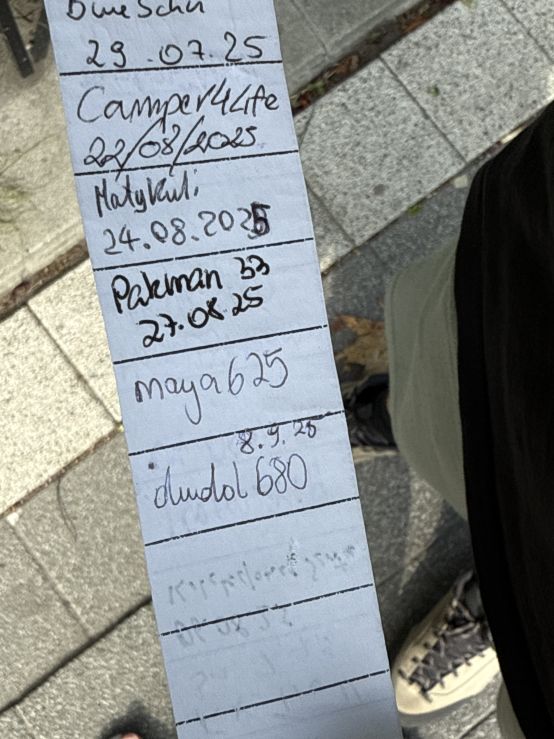 29.07.25
Camper4Life
22/08/2025
MatyKuli
24.08.2025
Pakman 33
27.08.25
maya625
8.9.25
dudol 680